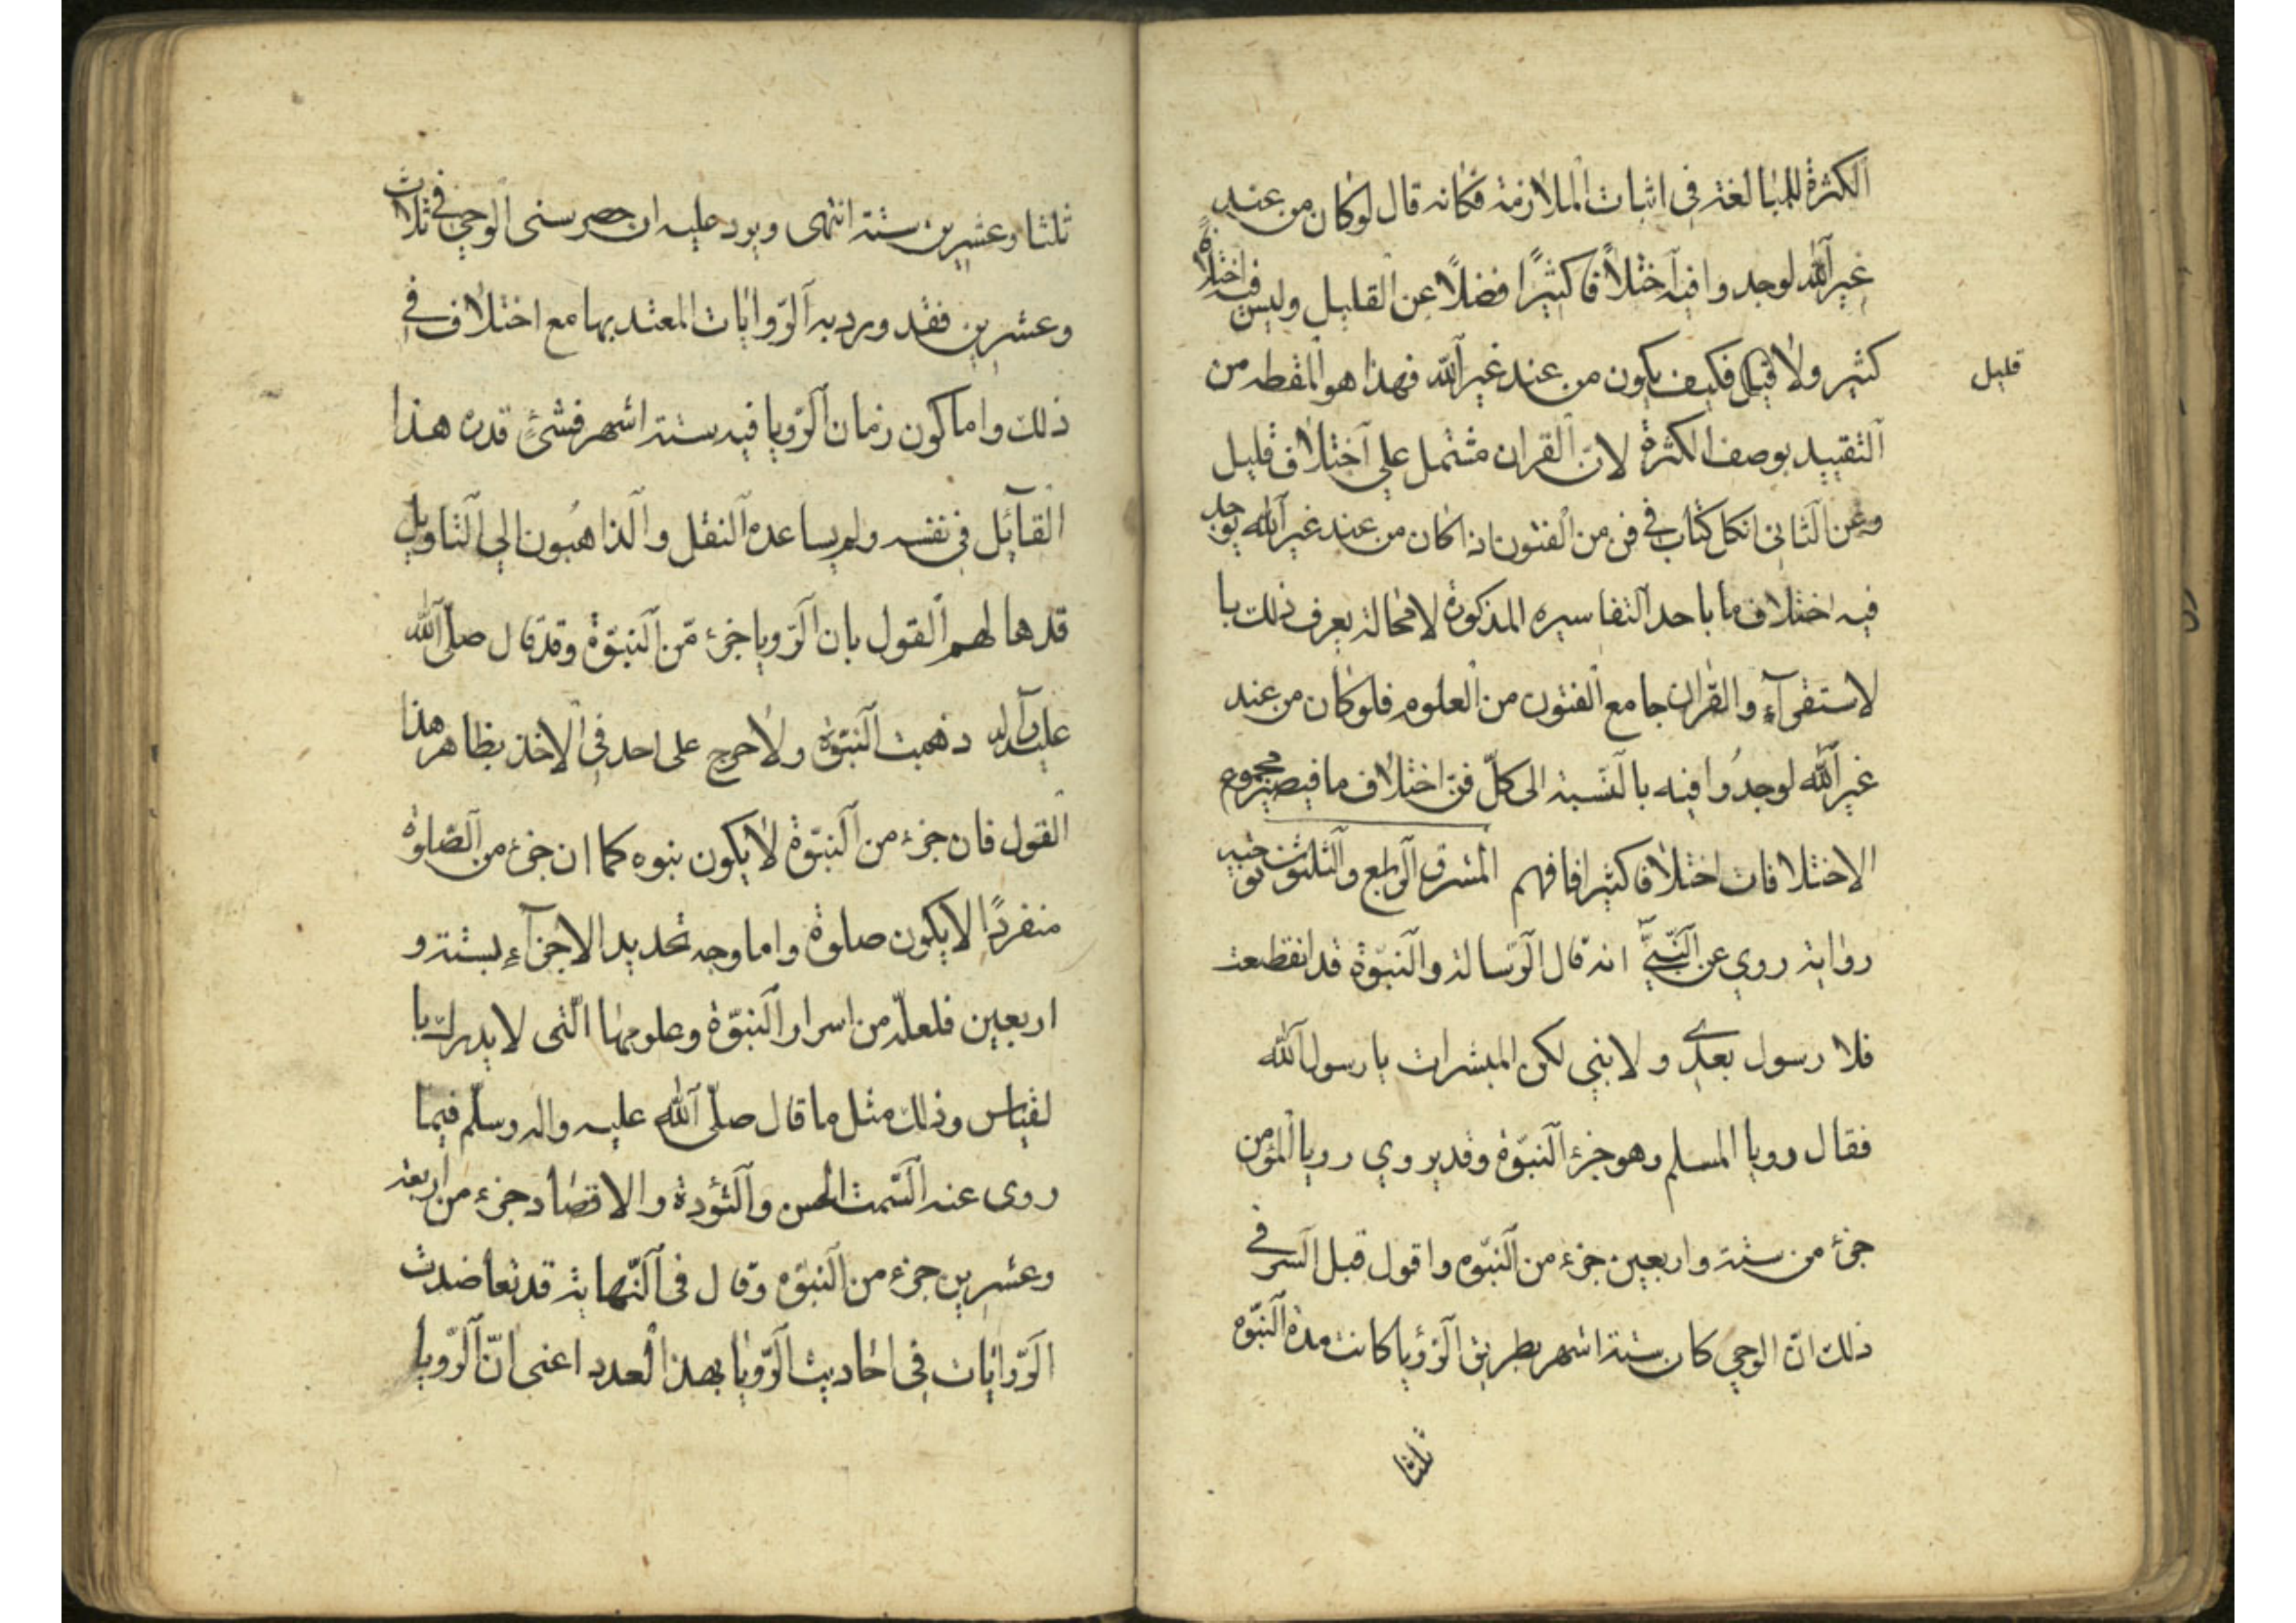 الكثرة للمبالغة فى اثبات الملازمة فكانه قال لو كان من عند
غير الله لوجدوا فيه اختلافا كثيرًا فضلًا عن القليل وليس فيه اختلافًا
كثير ولا قليل فكيف يكون من عند غير الله فهذا هو المقطه من
قليل
التقييد بوصف الكثرة لانّ القران مشتمل علي اختلاف قليل
وعن الثانى ان كل كتاب في فن من الفنون اذا كان من عند غير الله يوجد
فيه اختلاف ما باحد التفاسيره المذكورة لا محالة يعرف ذلك با
لاستقرآء والقران جامع الفنون من العلوم فلو كان من عند
غير الله لوجدُوا فيه بالنسبة الى كلّ فنّ اختلاف ما فيصير مجموع
الاختلافات اختلافا كثيرا فافهم المشرق الرابع والثلثون توجيه
رواية روي عن النّبيّ انه قال الرّسالة والنّبوّة قد انقطعت
فلا رسول بعدي ولا نبي لكن المبشرات يا رسول الله
فقال رويا المسلم وهو جزء النّبوّة وقد يروي رويا المؤمن
جزء من ستة واربعين جزء من النّبوّه واقول قبل السر في
ذلك انّ الوحي كان ستة اشهر بطريق الرّؤيا كانت مدة النّبوّه
ثلثا
ثلثا وعشرين ستة انتهى ويرد عليه ان حصر سنى الوحي في ثلاث
وعشرين فقد ورد به الرّوايات المعتد بها مع اختلاف في
ذلك واما كون زمان الرّويا فيه ستة اشهر فشئ قدره هذا
القآئل في نفسه ولم يساعده النقل والذاهبُون الي التاويل
قدها لهم القول بان الرّويا جزء مّن النّبوّة وقد قال صلّى الله
عليه وآله ذهبت النّبوّة ولا حرج على احد في الاخذ بظاهر هذا
القول فان جزء من النّبوّة لا يكون بنوه كما ان جزء من الصّلوة
منفردًا لا يكون صلوة واما وجه تحديد الاجزآء بستة و
اربعين فلعلّه من اسرار النّبوّة وعلومها الّتى لا يدرك با
لقياس وذلك مثل ما قال صلّى الله عليه واله وسلّم فيما
روى عنه السّمت الحسن والتّؤدة والاقتصاد جزء من اربعة
وعشرين جزء من النبوّه وقال فى النّهاية قد تعاضدت
الرّوايات في احاديث الرّويا بهذا العدد اعنى انّ الرّويا